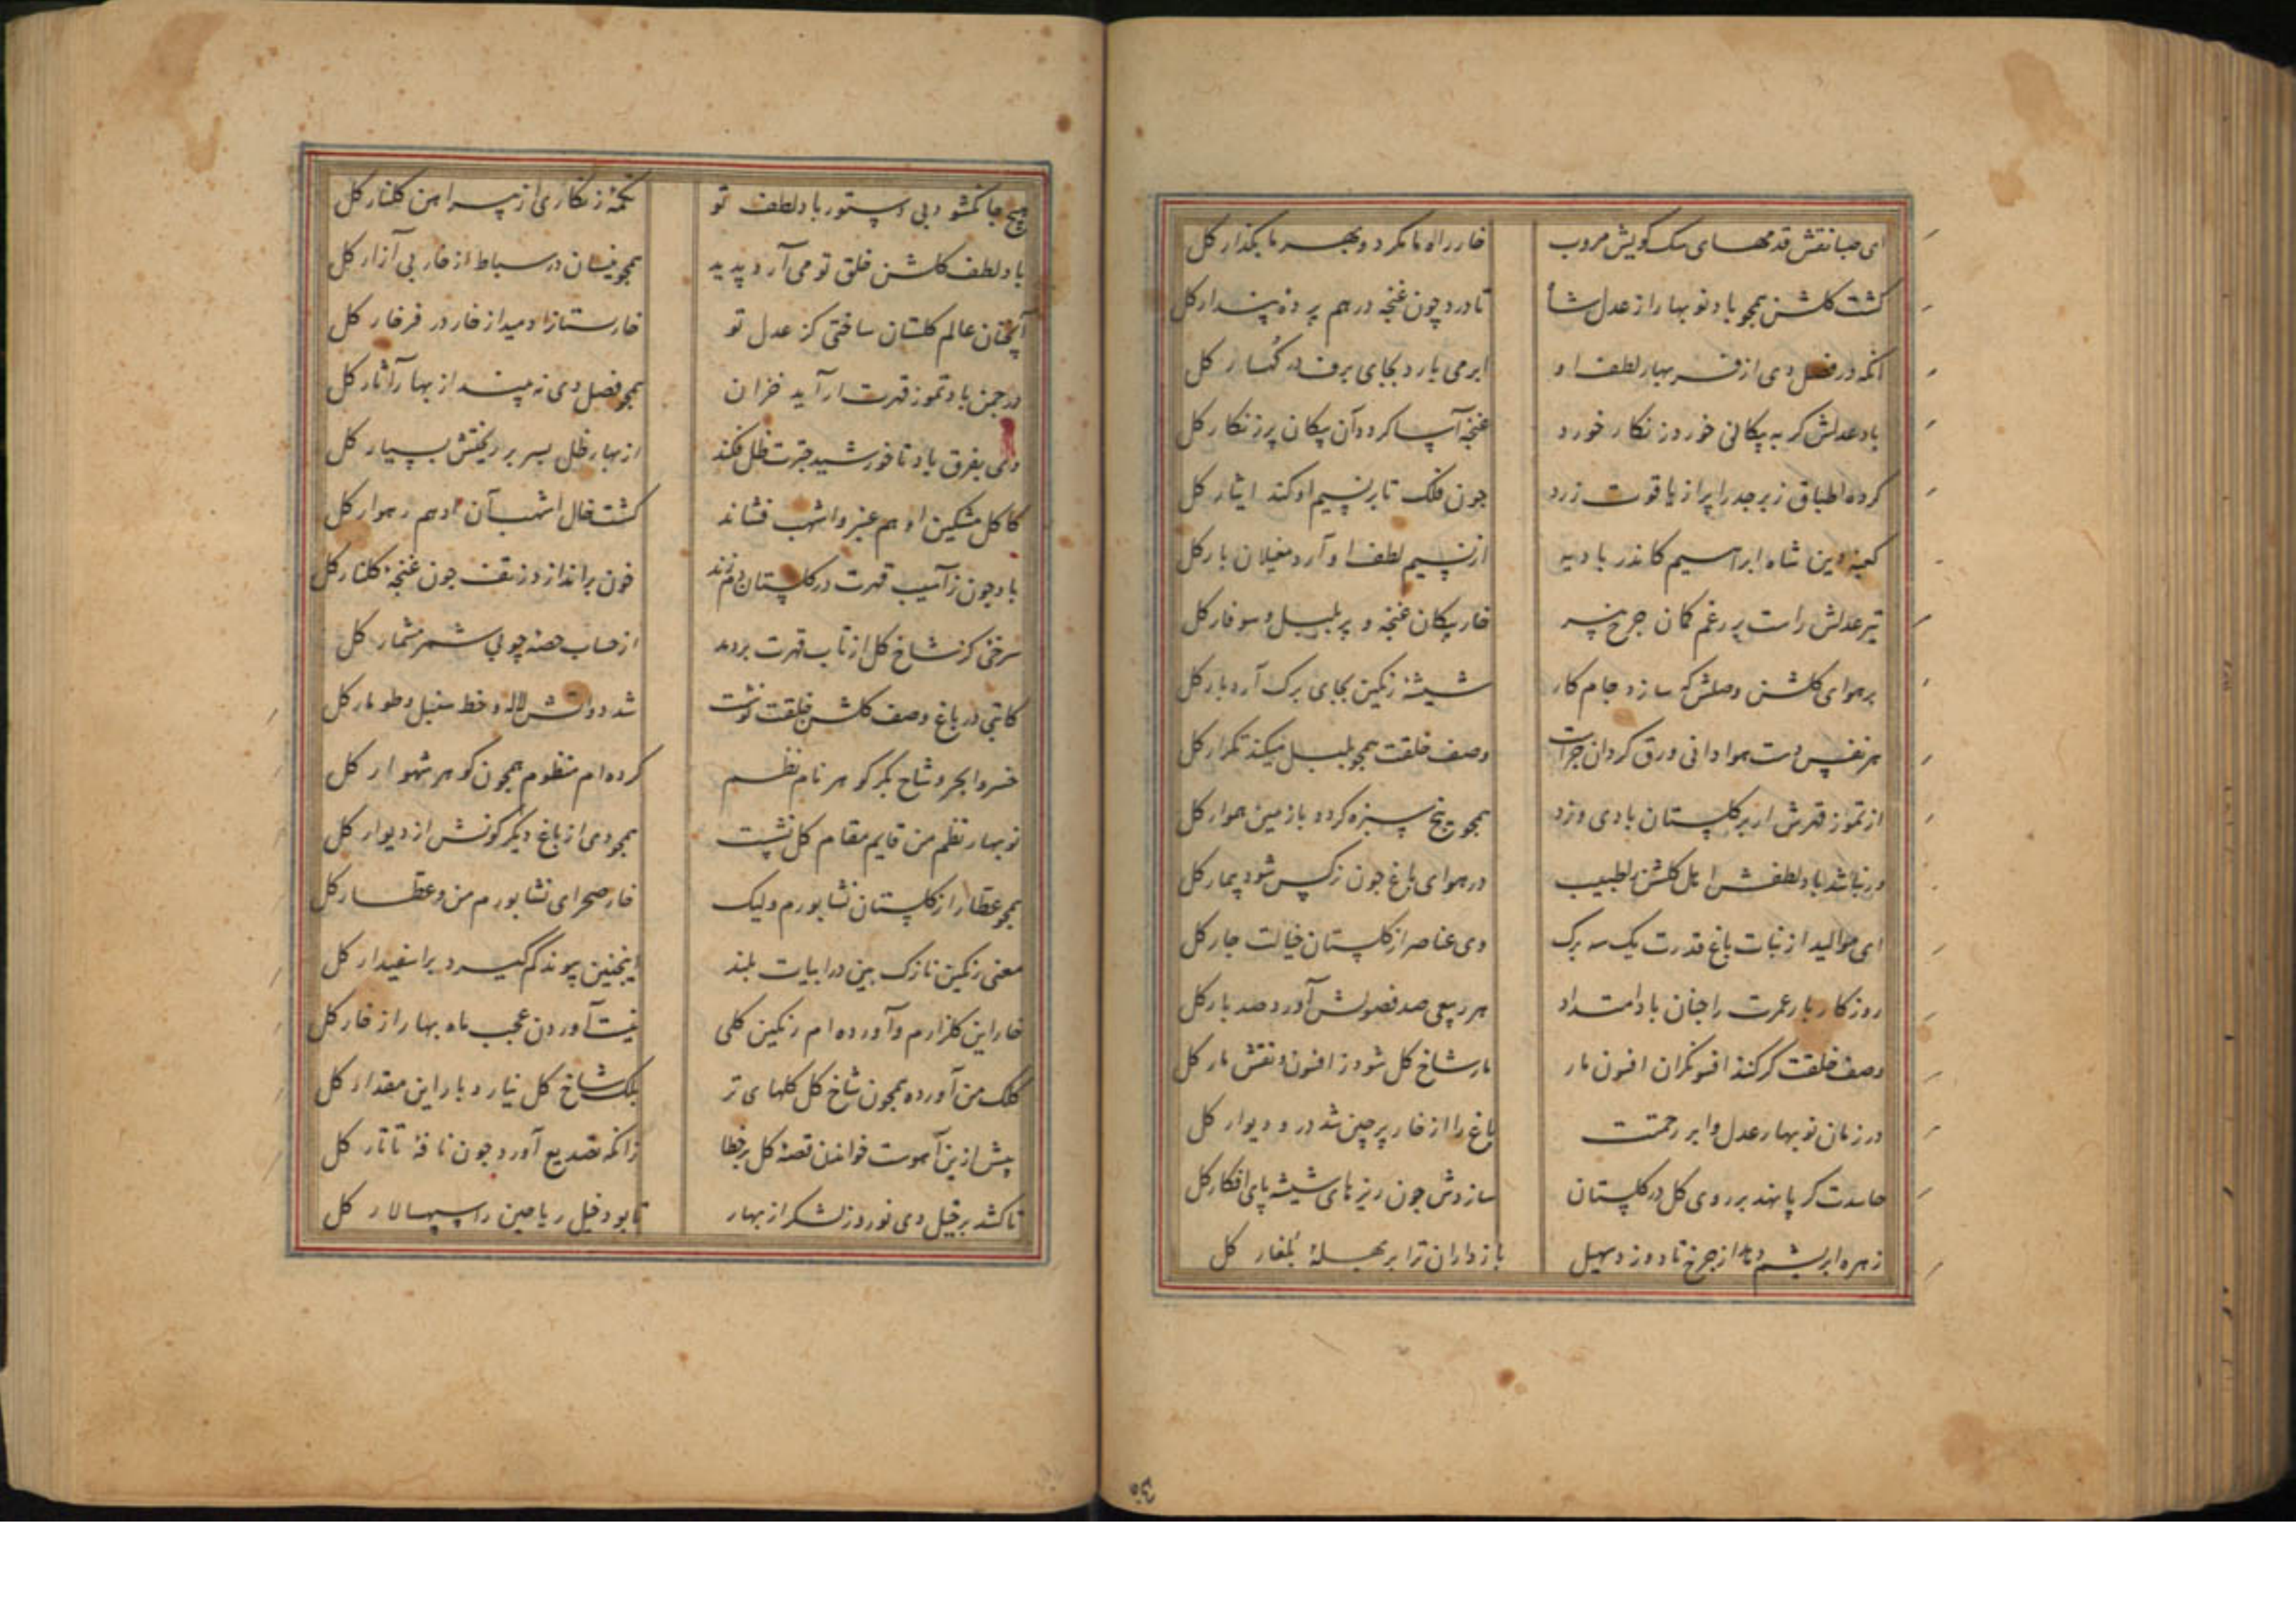 ای صبا نقش قدمهای سک کویش مروب خار راه ما مکرد و بهر ما بکذار کل
کشت کلشن همچو باد نوبهار از عدل شاه تا درد چون غنچه در هم پرده پندار کل
آنکه در فصل دی از فر بهار لطف او ابر می بارد بجای برف در کهسار کل
باد عدلش کر به پیکانی خورد زنکار خورد غنچه آسا کردد آن پیکان پر زنکار کل
کرده اطباق زبرجد را پر از یاقوت زرد چون فلک تا بر نسیم او کند ایثار کل
کعبه دین شاه ابراهیم کاندر بادیه از نسیم لطف او آرد مغیلان بار کل
تیر عدلش راست بر رغم کمان چرخ پیر خار پیکان غنچه و پر بلبل و سوفار کل
بر هوای کلشن وصلش که سازد جام کار شیشه رنکین بجای برک آرد بار کل
هر نفس دست هوا دانی ورق کردان چراست وصف خلقت همچو بلبل میکند تکرار کل
از تموز قهرش ار بر کلستان بادی وزد همچو یخ سبزه کردد با زمین هموار کل
ور نباشد باد لطفش اهل کلشن را طبیب در هوای باغ چون نرکس شود بیمار کل
ای موالید از نبات باغ قدرت یک سه برک وی عناصر از کلستان خیالت چار کل
روزکار بار عمرت را چنان باد امتداد هر ربیعی صد فصولش آورد صد بار کل
وصف خلقت کر کند افسونکران افسون مار مار شاخ کل شود ز افسون و نقش مار کل
در زمان نوبهار عدل و ابر رحمتت باغ را از خار پرچین شد در و دیوار کل
حاسدت کر پا نهد بر روی کل در کلستان سازدش چون ریزهای شیشه پای افکار کل
زهره ابریشم دهد از چرخ تا دوزد سهیل بازداران ترا بر بهله بلغار کل
هیچ جا نکشود بی دستور باد لطف تو تکمه زنکاری از پیراهن کلنار کل
باد لطف کلشن خلق تو می آرد پدید همچو نیسان در سباط از خار بی آزار کل
آنچنان عالم کلستان ساختی کز عدل تو خارستانرا دمید از خار در فرخار کل
در چمن باد تموز قهرت ار آید خزان همچو فصل دی نه بیند از بهار آثار کل
دی بفرق باد تا خورشید چترت ظل فکند از بهار ظل بسر بر ریختش بسیار کل
کاکل مشکین ادهم عنبر و اشهب فشاند کشت خال اشهب آن ادهم رهوار کل
باد چون ز آسیب قهرت در کلستان دم زند خون براندازد ز سقف چون غنچه کلنار کل
سرخئی کز شاخ کل از تاب قهرت بردمد از حساب حصبه چوبی شمر مشمار کل
کاتبی در باغ وصف کلشن خلقت نوشت شد دواتش لاله و خط سنبل و طومار کل
خسروا بحر و شاخ بکر کوهر نام نظم کرده ام منظوم همچون کوهر شهوار کل
نوبهار نظم من قایم مقام کل نشست همچو دی از باغ دیکر کو نش از دیوار کل
همچو عطار از کلستان نشابورم ولیک خار صحرای نشابورم من و عطار کل
معنی رنکین نازک بین در ابیات بلند اینچنین پیوند کم کیرد بر اسفیدار کل
خار این کلزارم و آورده ام رنکین کلی نیست آوردن عجب ماه بهار از خار کل
کلک من آورده همچون شاخ کل کلهای تر بلک شاخ کل نیارد بار این مقدار کل
پیش ازین آهوست خواندن قصه کل بر خطا زانکه تصدیع آورد چون نافه تاتار کل
تا کشد بر خیل دی نوروز لشکر از بهار تا بود خیل ریاحین را سپهسالار کل